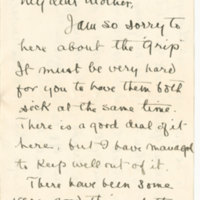 My dear Mother,
I am so sorry to
here about the "Grip"
It must be very hard
for you to have them both
sick at the same time.
There is a good deal of it
here, but I have managed
to keep well out of it.
There have been some
very good things